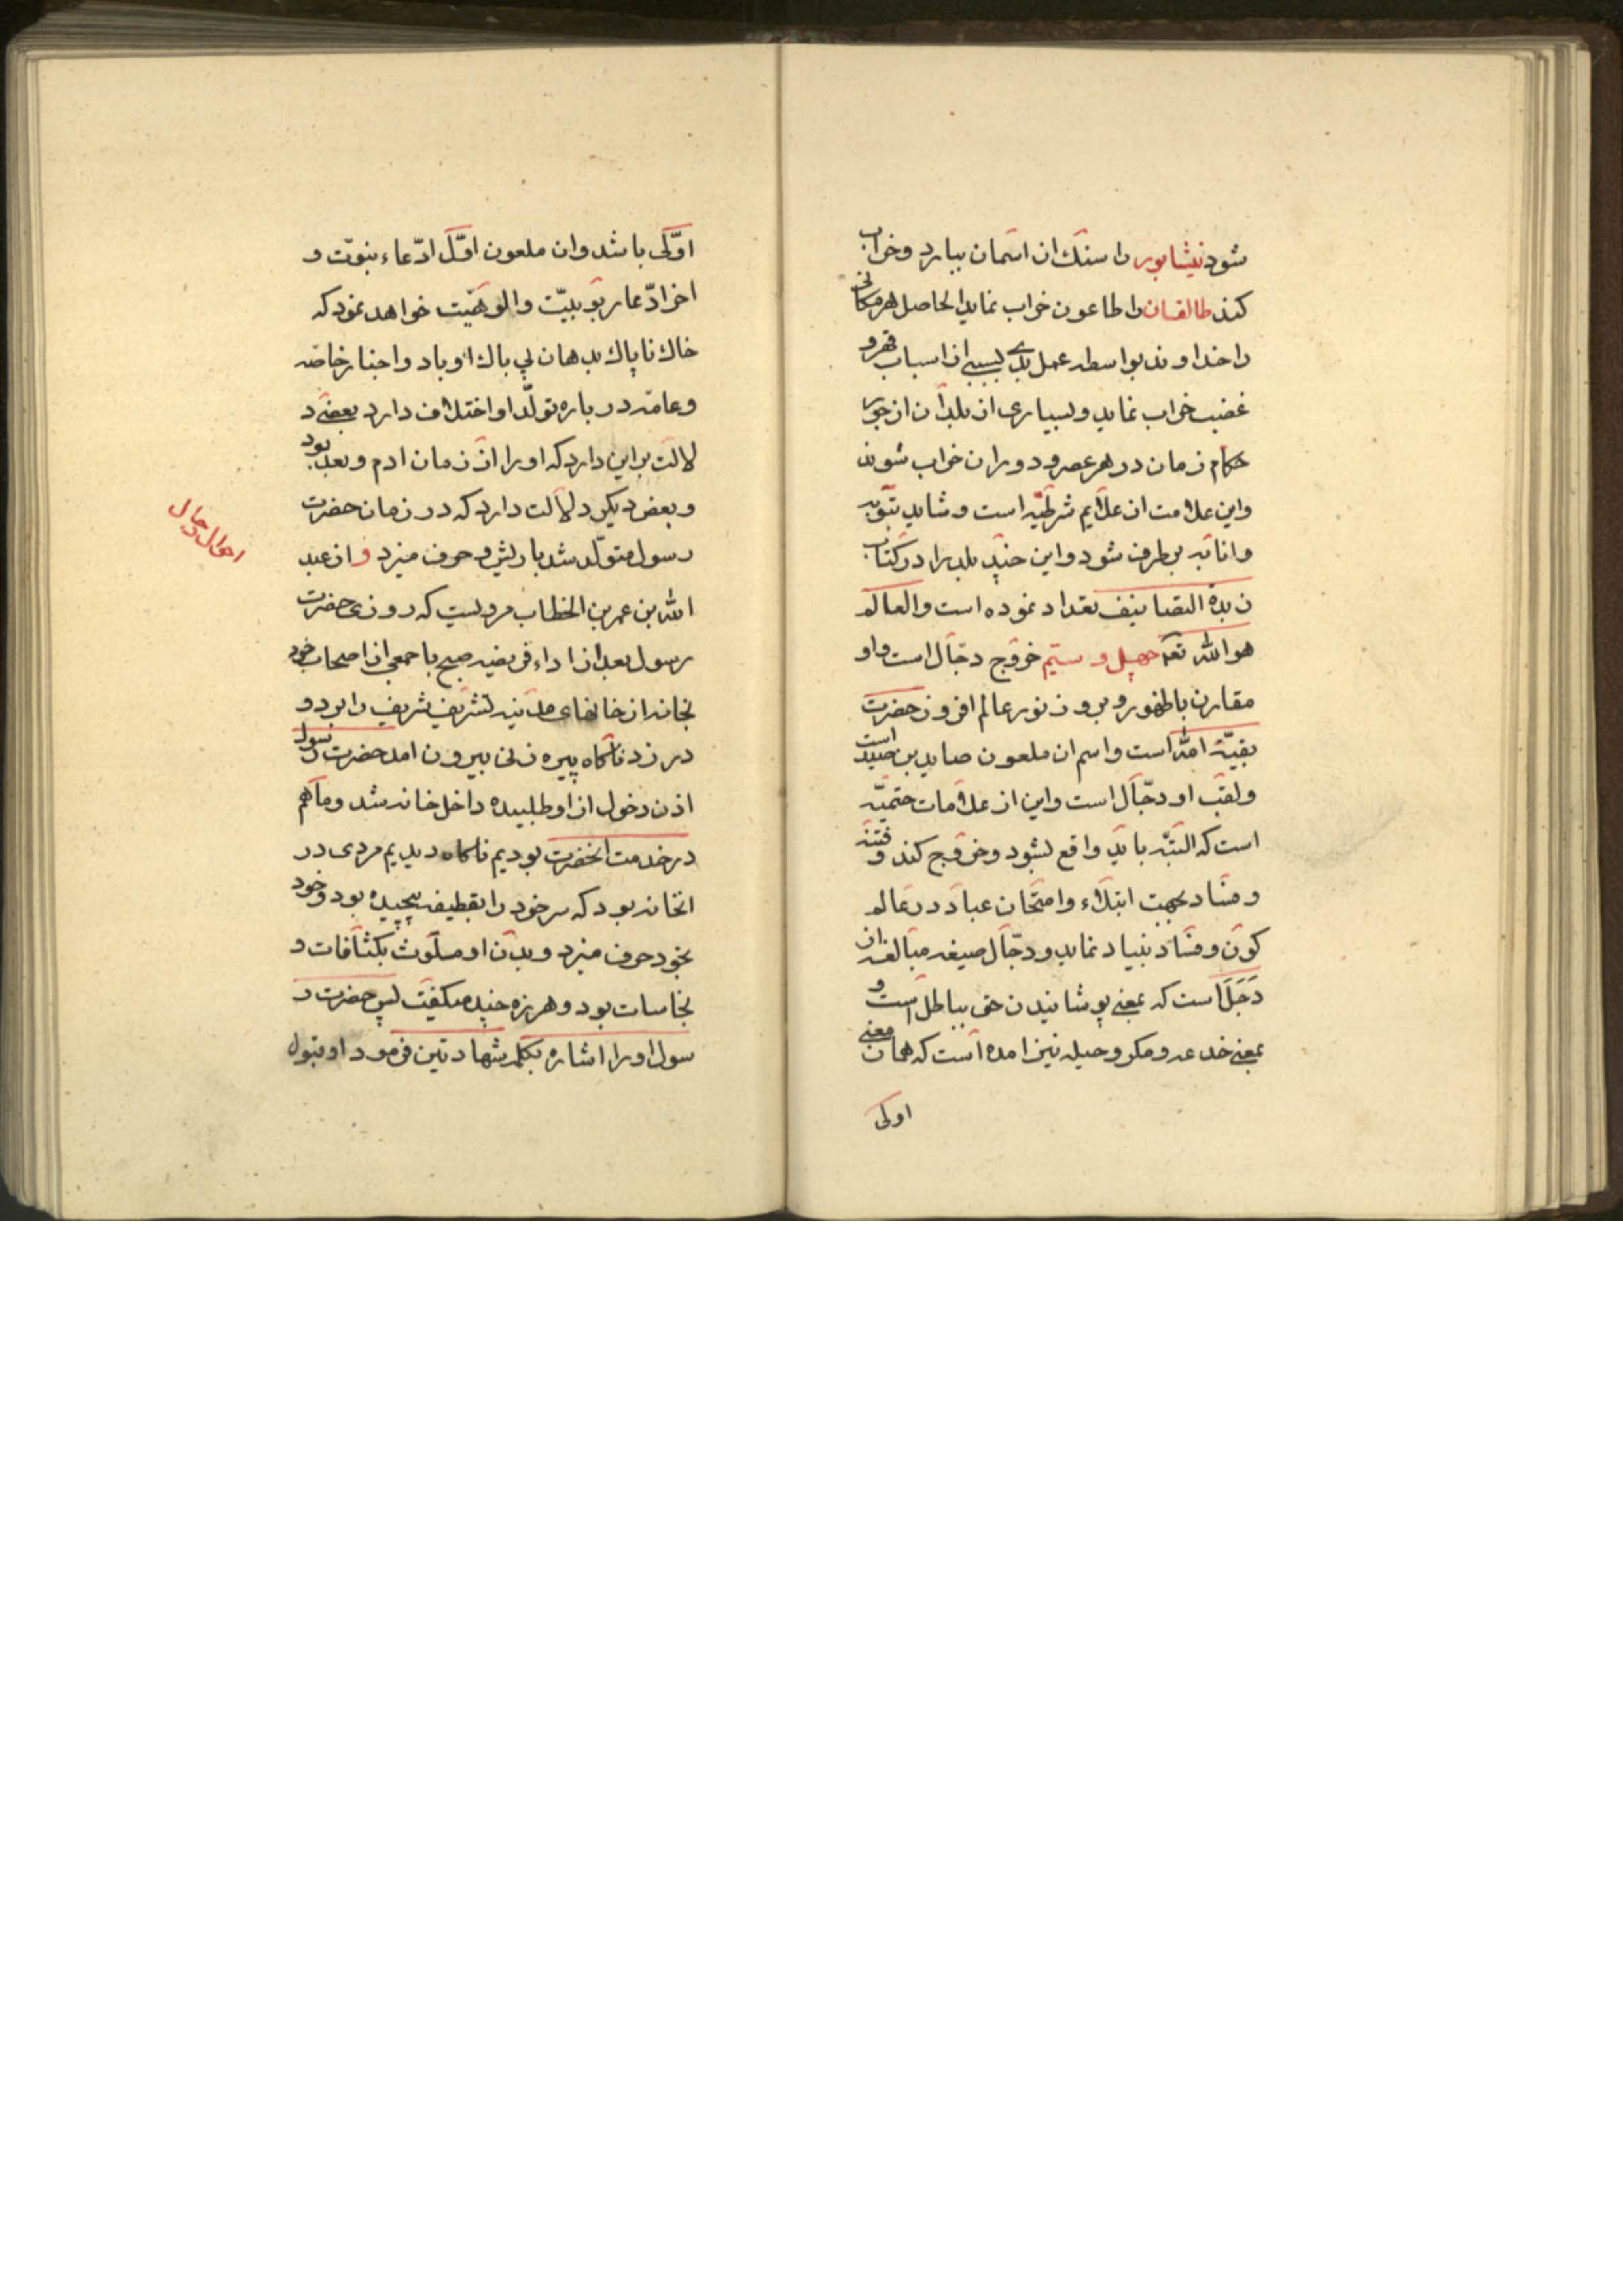 شود نیشابور را سنک از اسمان ببارد وخراب
کند طالقان را طاعون خراب نماید الحاصل هر مکانی
را خداوند بواسطه عمل بدی بسببی از اسباب قهر و
غضب خراب نماید و بسیاری از بلدان از جور
حکام زمان در هر عصر و دوران خراب شوند
واین علامت از علایم شرطیّه است و شاید بتوبه
وانابه برطرف شود واین چند بلد را در کتاب
زبدة التصانیف تعداد نموده است والعالم
هو الله تعه چهل و ستیم خروج دجّال است واو
مقارن با ظهور و بروز نور عالم افروز حضرت
بقیّة الله است واسم ان ملعون صاید بن صید است
ولقب او دجّال است واین از علامات حتمیّه
است که البتّه باید واقع بشود وخروج کند و فتنه
و فساد بجهت ابتلاء وامتحان عباد در عالم
کون و فساد بنیاد نماید و دجّال صیغه مبالغه از
دَجَلَ است که بمعنی پوشانیدن حق بباطل است و
بمعنی خدعه و مکر و حیله نیز امده است که همان معنی
اولی
اوّلی باشد وان ملعون اوّل ادّعاء نبوّت و
اخر ادّعا ربوبیّت والوهیّت خواهد نمود که
خاک ناپاک بدهان بی باک او باد واخبار خاصّه
وعامّه در باره تولّد او اختلاف دارد بعضی د
لالت بر این دارد که او را از زمان ادم و بعد بود
و بعض دیکر دلالت دارد که در زمان حضرت
رسول متولّد شد با ریش و حرف میزد و از عبد
الله بن عمر بن الخطاب مرویست که روزی حضرت
رسول بعد از اداء فریضه صبح با جمعی از اصحاب خود
بخانه از خانهای مدینه تشریف شریف را برد و
در زد ناکاه پیره زنی بیرون امد حضرت رسول
اذن دخول از او طلبیده داخل خانه شد وما هم
در خدمت انحضرت بودیم ناکاه دیدیم مردی در
انخانه بود که سر خود را بقطیفه پیچیده بود و خود
بخود حرف میزد و بدن او ملوث بکثافات و
نجاسات بود و هرزه چند میکفت پس حضرت ر
سول او را اشاره بکلمه شهادتین فرمود او قبول
احوال دجال